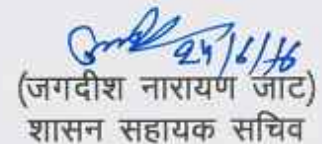 24/6/16
(जगदीश नारायण जाट)
शासन सहायक सचिव